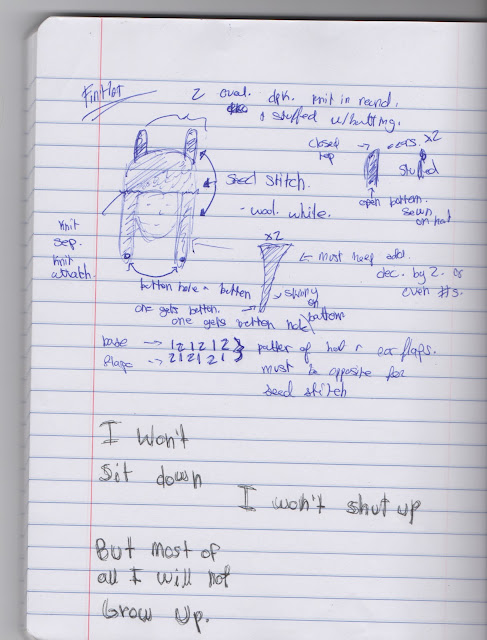 2 oval. dpk. knit in round.
& stuffed w/batting.
closed
top
→ ears. x2
stuffed
seed stitch.
open bottom.
sewn
on hat
- wool. white.
knit
sep.
knit
attach.
x2
← must keep odd.
dec. by 2. or
even #s.
button hole & button
one gets button.
one gets button hole
skinny
on
bottom
base → 1 2 1 2 1 2
flaps → 2 1 2 1 2 1
of hat & ear flaps.
must be opposite for
seed stitch
I Won't
Sit down
I won't shut up
But most of
all I will not
Grow Up.